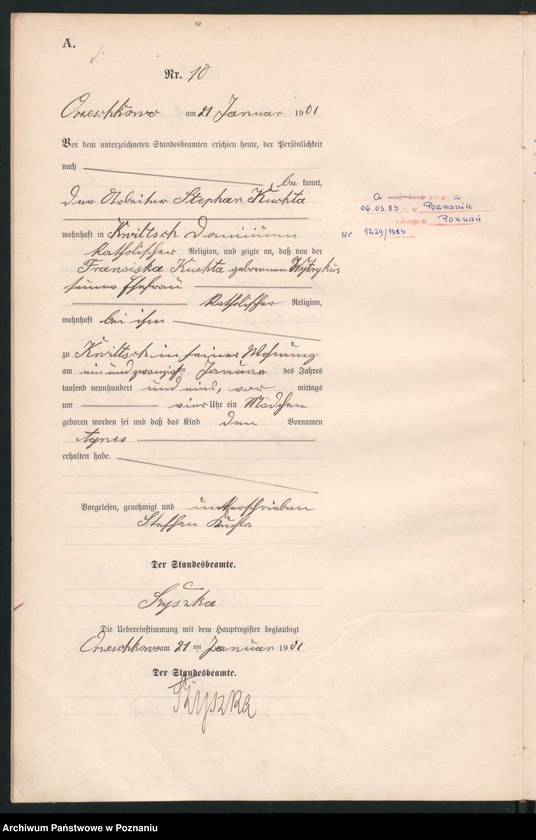 A.
Nr. 10
Orzeschkowo am 21 Januar 1901
Vor dem unterzeichneten Standesbeamten erschien heute, der Persönlichkeit
nach be kannt,
der Arbeiter Stephan Kuchta
wohnhaft in Kwiltsch Dominium
katholischer Religion, und zeigte an, daß von der
Franziska Kuchta geborenen
seiner Ehefrau
katholischer Religion,
wohnhaft bei ihm
zu Kwiltsch in seiner Wohnung
am ein und zwanzigten Januar des Jahres
tausend neunhundert und eins, vor mittags
um vier Uhr ein Mädchen
geboren worden sei und daß das Kind den Vornamen
Agnes
erhalten habe.
Vorgelesen, genehmigt und unterschrieben
Stephan Kuchta
Der Standesbeamte.
Szyszka
Die Uebereinstimmung mit dem Hauptregister beglaubigt
Orzeschkowo am 21 ten Januar 1901
Der Standesbeamte.
Szyszka
06.03.83 Poznaniu
Poznań
Nr 1229/1983
Archiwum Państwowe w Poznaniu